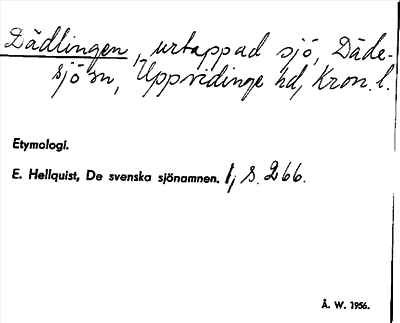 Dädlingen, urtappad sjö, Däde-
sjö sn, Uppvidinge hd, Kron. l.
Etymologi.
E. Hellquist, De svenska sjönamnen. 1, s. 266.
Å. W. 1956.